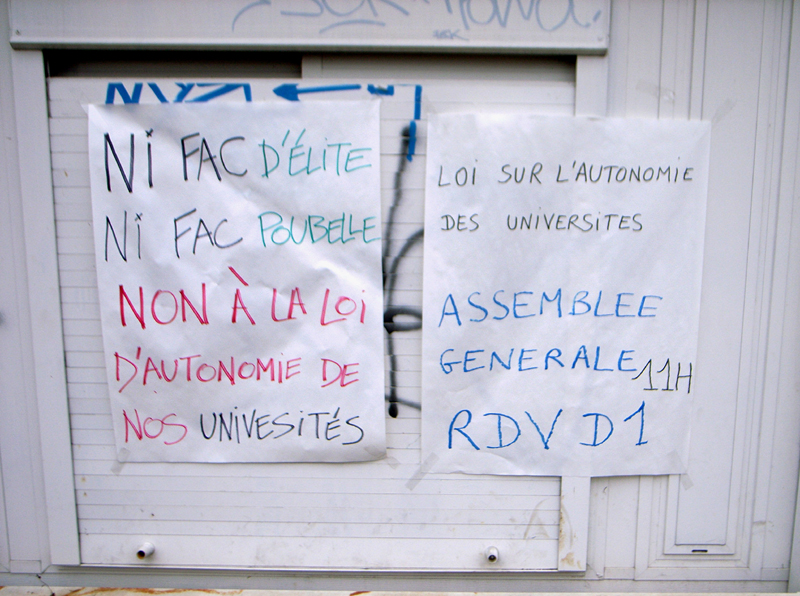 NI FAC D'ÉLITE
NI FAC POUBELLE
NON À LA LOI
D'AUTONOMIE DE
NOS UNIVESITÉS
LOI SUR L'AUTONOMIE
DES UNIVERSITES
ASSEMBLEE
GENERALE 11H
RDV D1